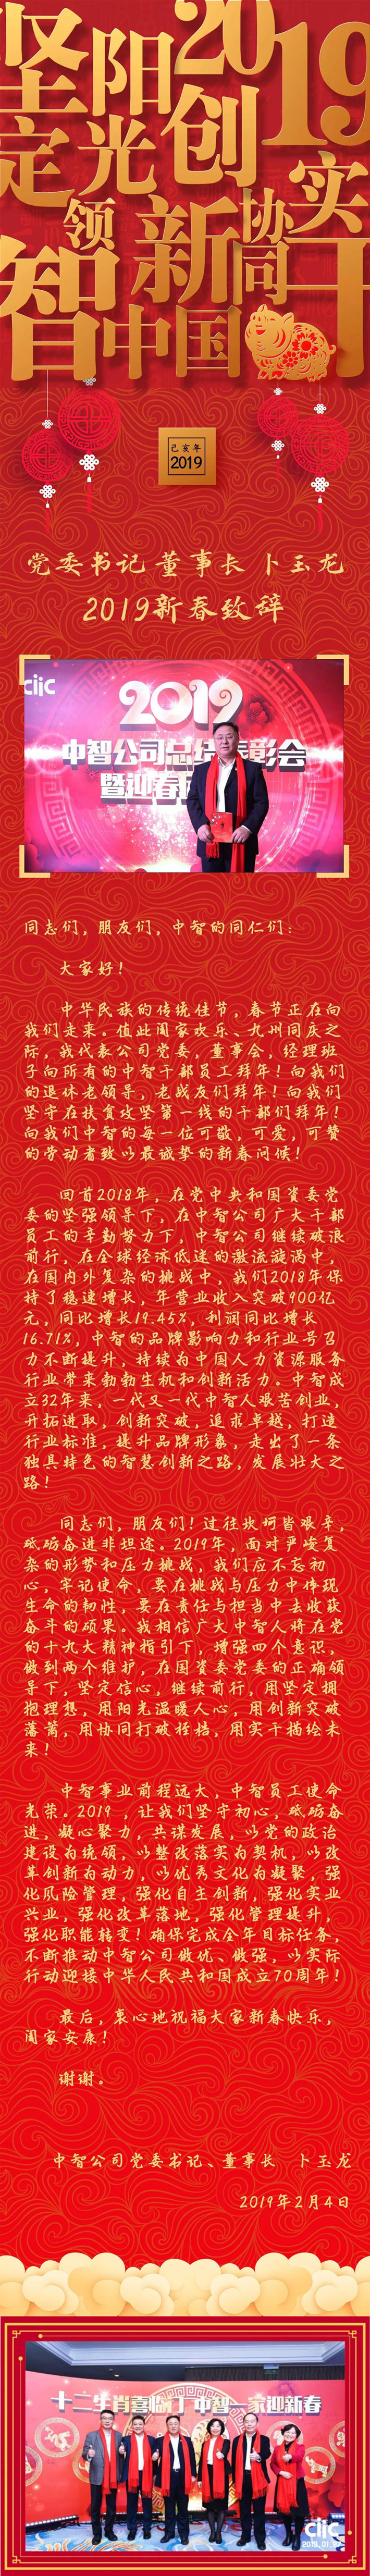 2019
坚定
阳光
创新
协同
实干
智领
中国
己亥年
2019
党委书记 董事长 卜玉龙
2019新春致辞
ciic
2019
中智公司总结表彰会
暨迎春
同志们，朋友们，中智的同仁们：
大家好！
中华民族的传统佳节，春节正在向
我们走来。值此阖家欢乐、九州同庆之
际，我代表公司党委，董事会，经理班
子向所有的中智干部员工拜年！向我们
的退休老领导，老战友们拜年！向我们
坚守在扶贫攻坚第一线的干部们拜年！
向我们中智的每一位可敬，可爱，可赞
的劳动者致以最诚挚的新春问候！
回首2018年，在党中央和国资委党
委的坚强领导下，在中智公司广大干部
员工的辛勤努力下，中智公司继续破浪
前行，在全球经济低迷的激流漩涡中，
在国内外复杂的挑战中，我们2018年保
持了稳速增长，年营业收入突破900亿
元，同比增长19.45%，利润同比增长
16.71%，中智的品牌影响力和行业号召
力不断提升，持续为中国人力资源服务
行业带来勃勃生机和创新活力。中智成
立32年来，一代又一代中智人艰苦创业，
开拓进取，创新突破，追求卓越，打造
行业标准，提升品牌形象，走出了一条
独具特色的智慧创新之路，发展壮大之
路！
同志们，朋友们！过往坎坷皆艰辛，
砥砺奋进非坦途。2019年，面对严峻复
杂的形势和压力挑战，我们应不忘初
心，牢记使命，要在挑战与压力中体现
生命的韧性，要在责任与担当中去收获
奋斗的硕果。我相信广大中智人将在党
的十九大精神指引下，增强四个意识，
做到两个维护，在国资委党委的正确领
导下，坚定信心，继续前行，用坚定拥
抱理想，用阳光温暖人心，用创新突破
藩篱，用协同打破桎梏，用实干描绘未
来！
中智事业前程远大，中智员工使命
光荣。2019，让我们坚守初心，砥砺奋
进，凝心聚力，共谋发展，以党的政治
建设为统领，以整改落实为契机，以改
革创新为动力，以优秀文化为凝聚，强
化风险管理，强化自主创新，强化实业
兴业，强化改革落地，强化管理提升，
强化职能转变！确保完成全年目标任务，
不断推动中智公司做优、做强，以实际
行动迎接中华人民共和国成立70周年！
最后，衷心地祝福大家新春快乐，
阖家安康！
谢谢。
中智公司党委书记、董事长 卜玉龙
2019年2月4日
十二生肖喜临门 中智一家迎新春
ciic